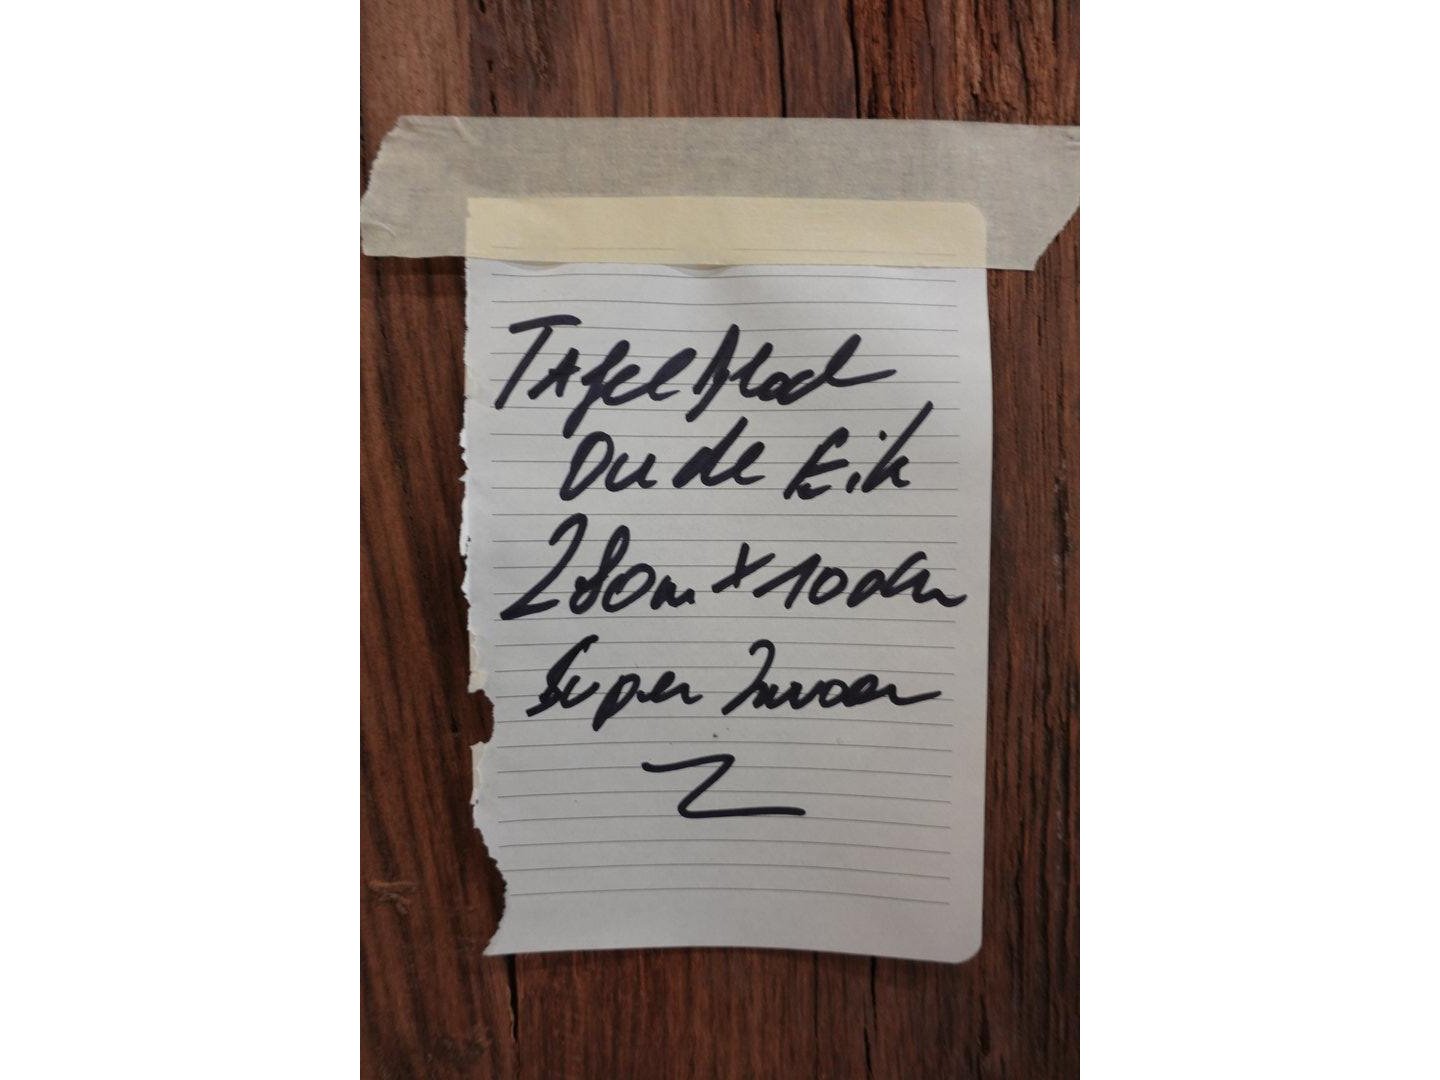 TAfelblad
Oude Eik
280cm x 100cm
Super Zwaar